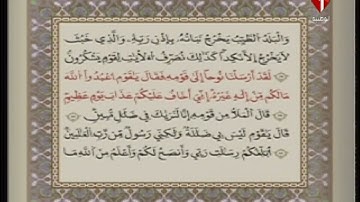 وَالْبَلَدُ الطَّيِّبُ يَخْرُجُ نَبَاتُهُ بِإِذْنِ رَبِّهِ وَالَّذِي خَبُثَ
لَا يَخْرُجُ إِلَّا نَكِدًا كَذَلِكَ نُصَرِّفُ الْآيَاتِ لِقَوْمٍ يَشْكُرُونَ
لَقَدْ أَرْسَلْنَا نُوحًا إِلَى قَوْمِهِ فَقَالَ يَا قَوْمِ اعْبُدُوا اللَّهَ
مَا لَكُمْ مِنْ إِلَهٍ غَيْرُهُ إِنِّي أَخَافُ عَلَيْكُمْ عَذَابَ يَوْمٍ عَظِيمٍ
قَالَ الْمَلَأُ مِنْ قَوْمِهِ إِنَّا لَنَرَاكَ فِي ضَلَالٍ مُبِينٍ
قَالَ يَا قَوْمِ لَيْسَ بِي ضَلَالَةٌ وَلَكِنِّي رَسُولٌ مِنْ رَبِّ الْعَالَمِينَ
أُبَلِّغُكُمْ رِسَالَاتِ رَبِّي وَأَنْصَحُ لَكُمْ وَأَعْلَمُ مِنَ اللَّهِ مَا